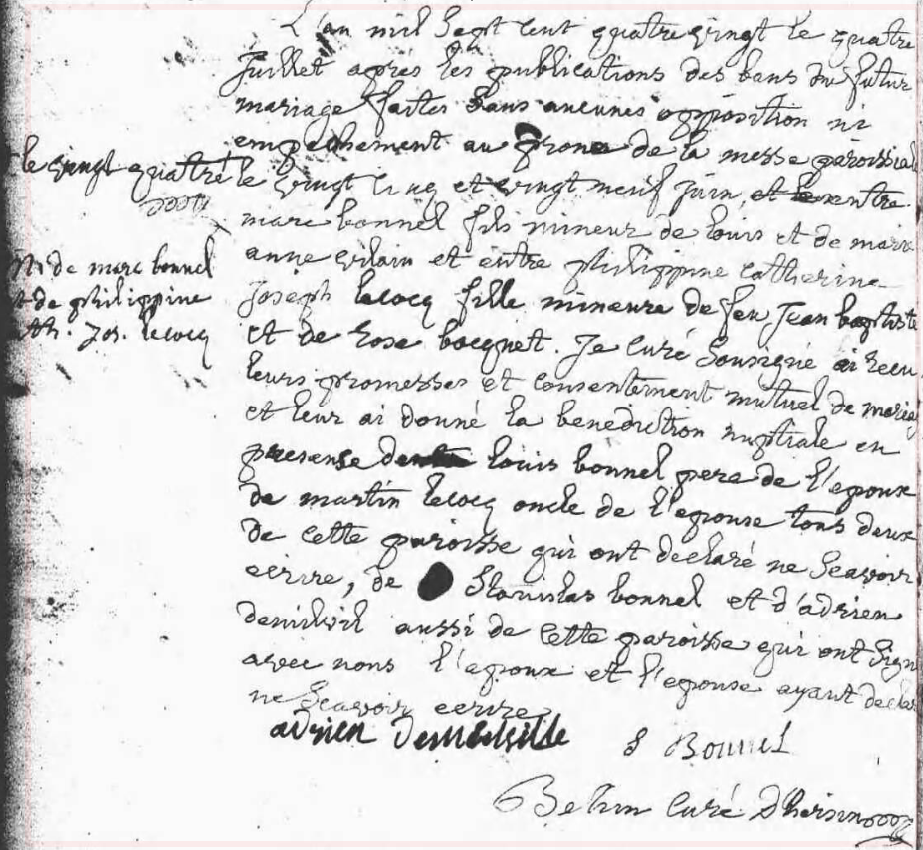 L'an mil Sept cent quatre vingt le quatre
Juillet après les publications des bans du futur
mariage faites Sans aucunes opposition ni
empechement au prone de la messe paroissial
le vingt quatre le vingt cinq et vingt neuf Juin, entre
marc bonnel fils mineur de louis et de marie
anne vilain et entre philippine Catherine
Joseph lecocq fille mineure de feu Jean baptiste
et de Rose bocquet. Je Curé Sousigné ai recu
leurs promesses et consentement mutuel de mariag
et leur ai donné la benediction nuptiale en
presense de louis bonnel pere de l'epoux
de martin lecocq oncle de l'epouse tous deux
de cette paroisse qui ont declaré ne Scavoir
ecrire, de Stanislas bonnel et d'adrien
aussi de cette paroisse qui ont Sign
avec nous l'epoux et l'epouse ayant declar
ne Scavoir ecrire
de marc bonnel
de philippine
Jos. lecocq
adrien
S Bonnel
Curé